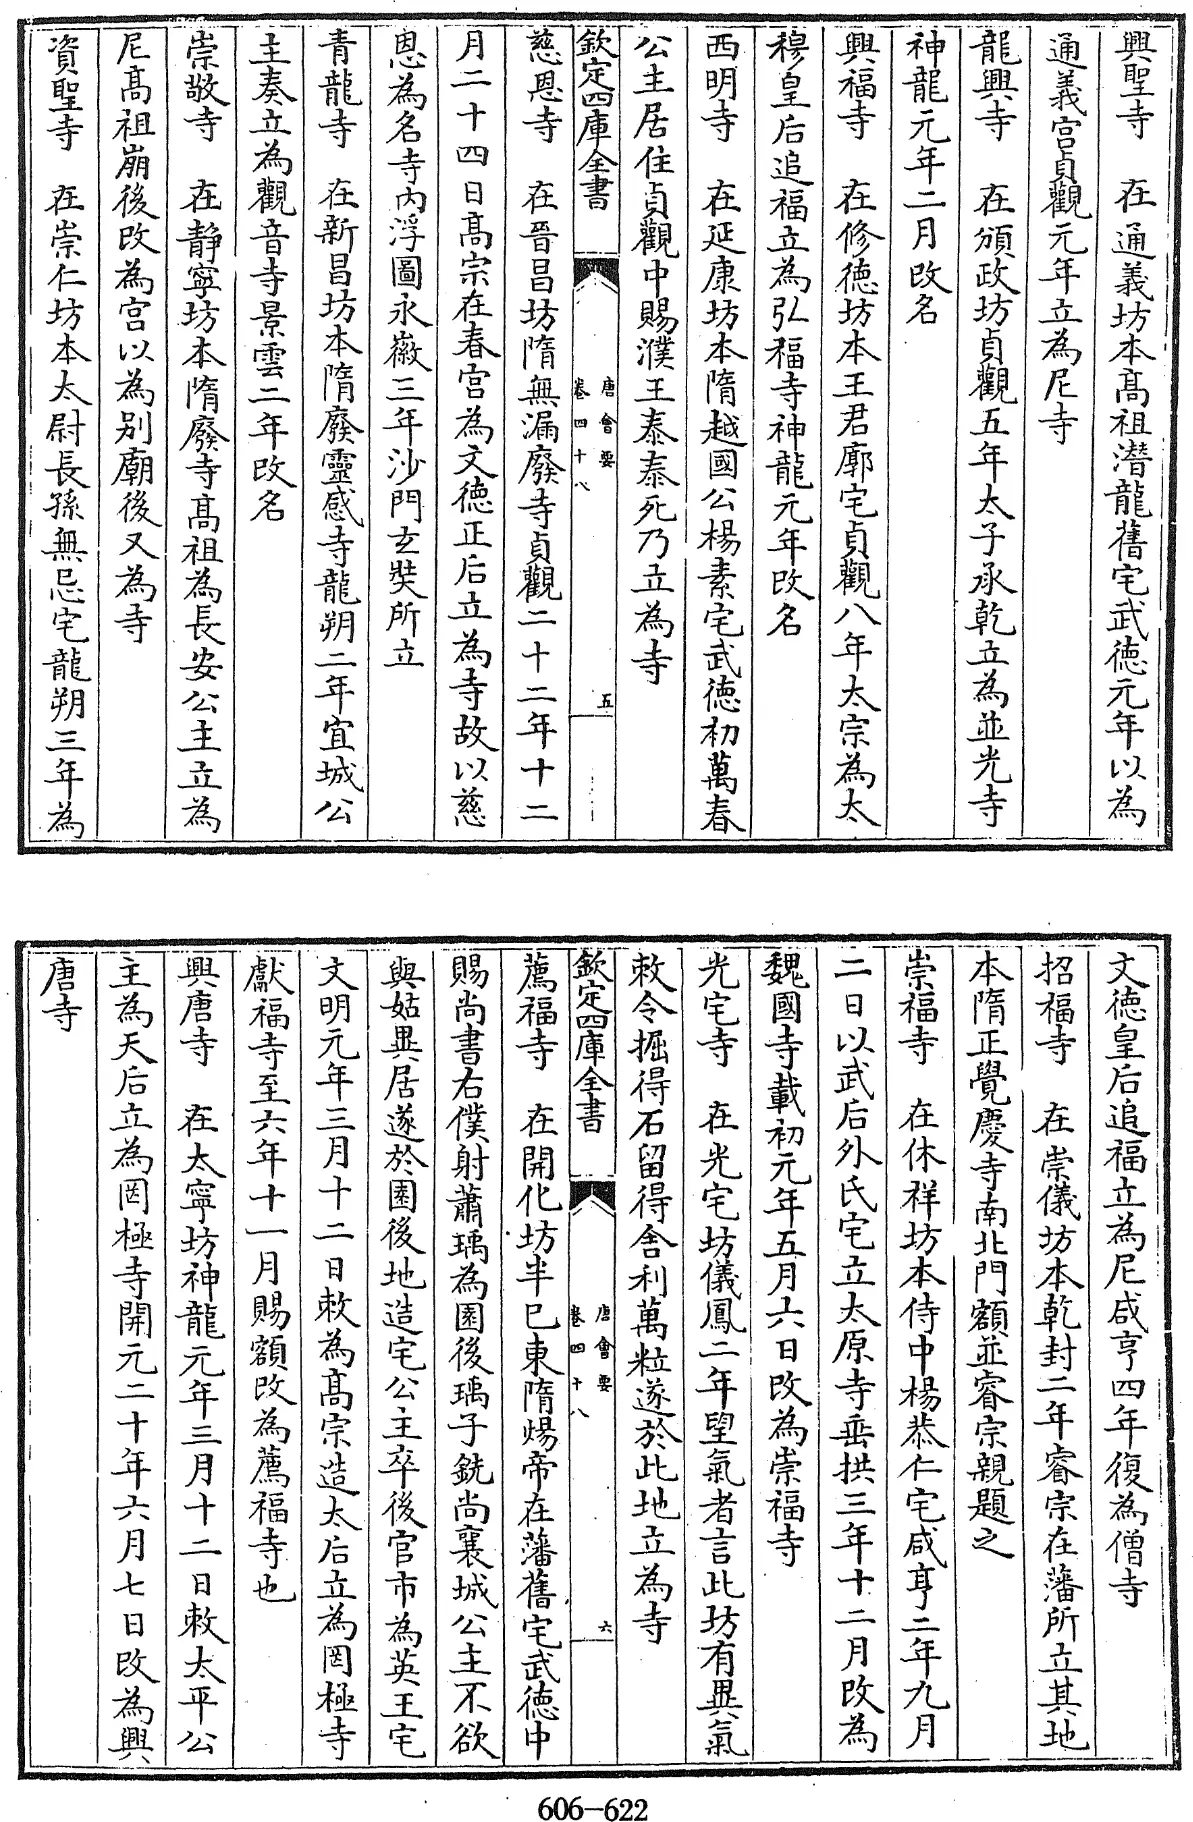 興聖寺　在通義坊本髙祖潛龍舊宅武徳元年以為
通義宮貞觀元年立為尼寺
龍興寺　在頒政坊貞觀五年太子承乾立為並光寺
神龍元年二月改名
興福寺　在修徳坊本王君廓宅貞觀八年太宗為太
穆皇后追福立為弘福寺神龍元年改名
西明寺　在延康坊本隋越國公楊素宅武徳初萬春
公主居住貞觀中賜濮王泰泰死乃立為寺
欽定四庫全書
唐會要
卷四十八
五
慈恩寺　在晉昌坊隋無漏廢寺貞觀二十二年十二
月二十四日髙宗在春宮為文徳正后立為寺故以慈
恩為名寺内浮圖永徽三年沙門玄奘所立
青龍寺　在新昌坊本隋廢靈感寺龍朔二年宜城公
主奏立為觀音寺景雲二年改名
崇敬寺　在静寧坊本隋廢寺髙祖為長安公主立為
尼髙祖崩後改為宮以為别廟後又為寺
資聖寺　在崇仁坊本太尉長孫無忌宅龍朔三年為
文徳皇后追福立為尼咸亨四年復為僧寺
招福寺　在崇儀坊本乾封二年睿宗在藩所立其地
本隋正覺慶寺南北門額並睿宗親題之
崇福寺　在休祥坊本侍中楊恭仁宅咸亨二年九月
二日以武后外氏宅立太原寺垂拱三年十二月改為
魏國寺載初元年五月六日改為崇福寺
光宅寺　在光宅坊儀鳳二年望氣者言此坊有異氣
敕令掘得石留得舍利萬粒遂於此地立為寺
欽定四庫全書
唐會要
卷四十八
六
薦福寺　在開化坊半已東隋煬帝在藩舊宅武徳中
賜尚書右僕射蕭瑀為園後瑀子銳尚襄城公主不欲
與姑異居遂於園後地造宅公主卒後官市為英王宅
文明元年三月十二日敕為髙宗造太后立為罔極寺
獻福寺至六年十一月賜額改為薦福寺也
興唐寺　在太寧坊神龍元年三月十二日敕太平公
主為天后立為罔極寺開元二十年六月七日改為興
唐寺
606-622